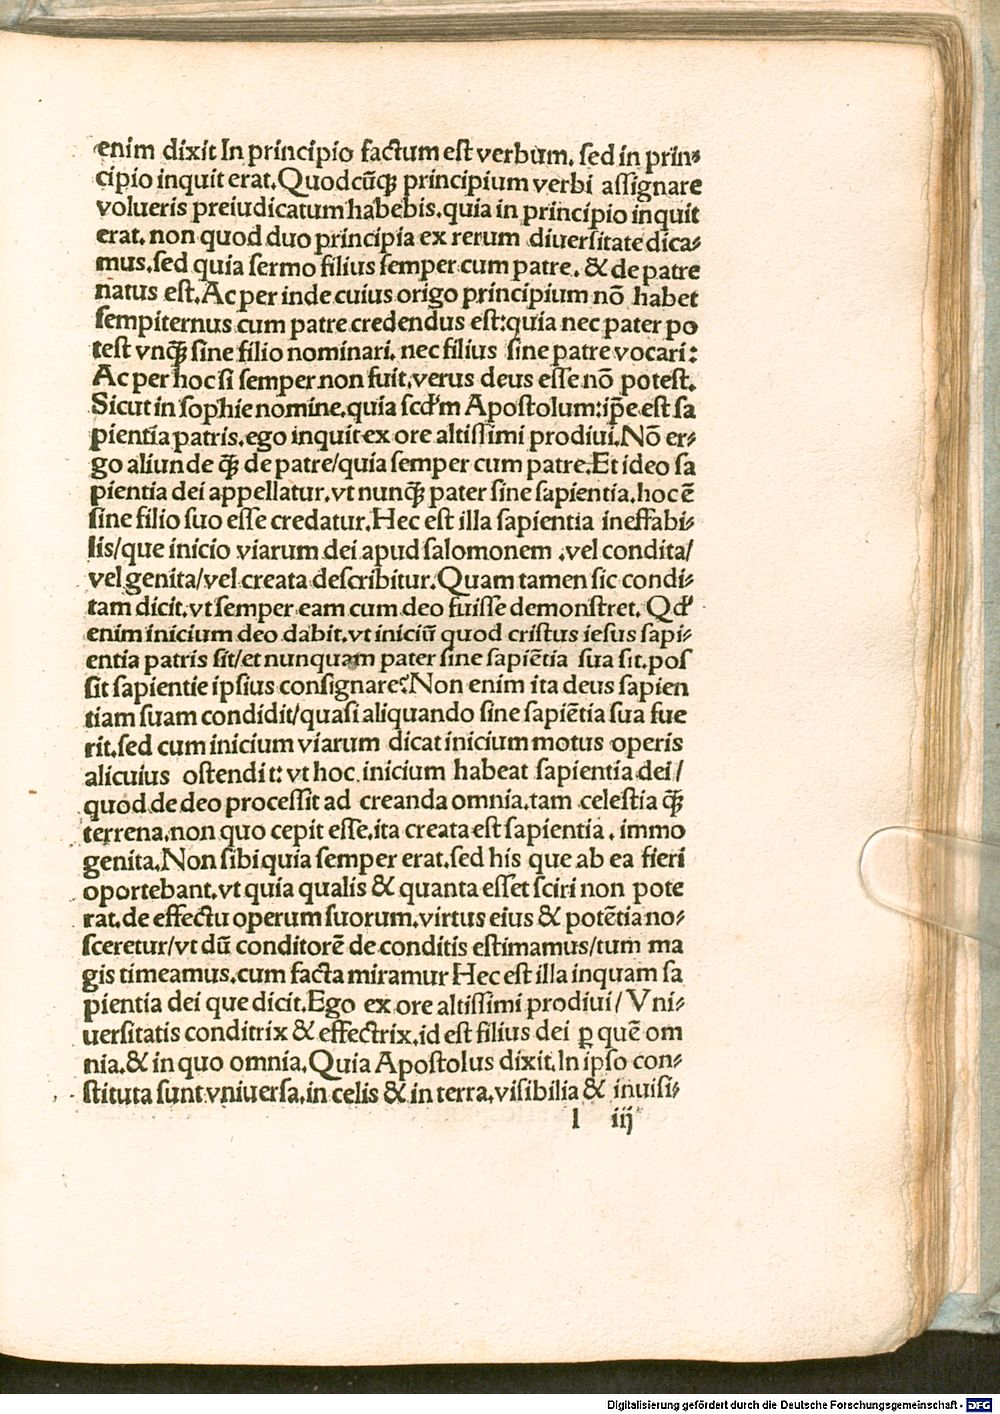 enim dixit In principio factum est verbum. sed in prin⸗
cipio inquit erat. Quodcūqȝ principium verbi assignare
volueris preiudicatum habebis. quia in principio inquit
erat. non quod duo principia ex rerum diuersitate dica⸗
mus. sed quia sermo filius semper cum patre. & de patre
natus est. Ac per inde cuius origo principium nō habet
sempiternus cum patre credendus est: quia nec pater po
test vnqȝ sine filio nominari. nec filius sine patre vocari:
Ac per hoc si semper non fuit. verus deus esse nō potest.
Sicut in sophie nomine. quia scd'm Apostolum: ip̄e est sa
pientia patris. ego inquit ex ore altissimi prodiui. Nō er⸗
go aliunde qȝ de patre/ quia semper cum patre. Et ideo sa
pientia dei appellatur. vt nunqȝ pater sine sapientia. hoc ē
sine filio suo esse credatur. Hec est illa sapientia ineffabi⸗
lis/ que inicio viarum dei apud salomonem . vel condita/
vel genita/ vel creata describitur. Quam tamen sic condi⸗
tam dicit. vt semper eam cum deo fuisse demonstret. Qd'
enim inicium deo dabit. vt iniciū quod cristus iesus sapi⸗
entia patris sit/ et nunquam pater sine sapiētia sua sit. pos
sit sapientie ipsius consignare? Non enim ita deus sapien
tiam suam condidit/ quasi aliquando sine sapiētia sua fue
rit. sed cum inicium viarum dicat inicium motus operis
alicuius ostendit: vt hoc inicium habeat sapientia dei/
quod de deo processit ad creanda omnia. tam celestia qȝ
terrena. non quo cepit esse. ita creata est sapientia . immo
genita. Non sibi quia semper erat. sed his que ab ea fieri
oportebant. vt quia qualis & quanta esset sciri non pote
rat. de effectu operum suorum. virtus eius & potētia no⸗
sceretur/ vt dū conditorē de conditis estimamus/ tum ma
gis timeamus. cum facta miramur Hec est illa inquam sa
pientia dei que dicit. Ego ex ore altissimi prodiui/ Vni⸗
uersitatis conditrix & effectrix. id est filius dei ꝑ quē om
nia. & in quo omnia. Quia Apostolus dixit. In ipso con⸗
stituta sunt vniuersa. in celis & in terra. visibilia & inuisi⸗
l iij
Digitalisierung gefördert durch die Deutsche Forschungsgemeinschaft - DFG